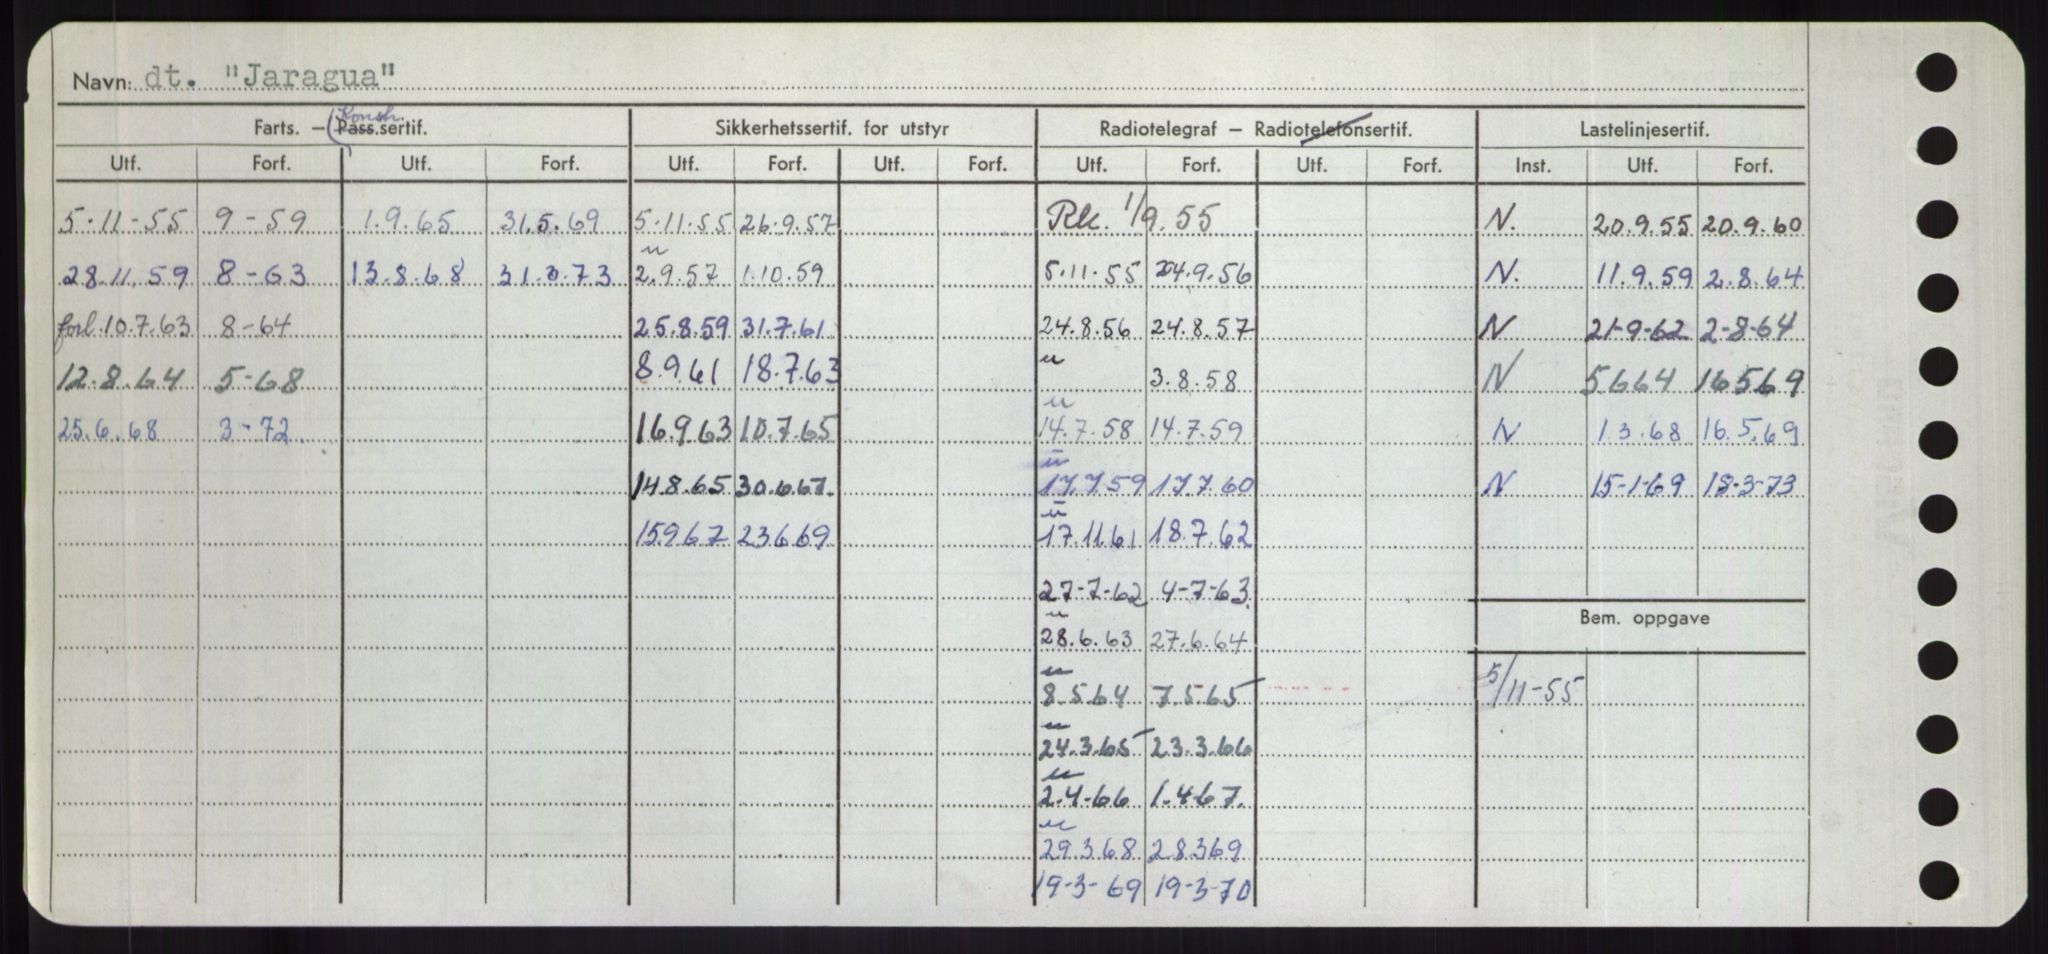 Navn: dt. "Jaragua"
Farts. — (Konstr. Pass.sertif. Sikkerhetssertif. for utstyr Radiotelegraf — Radiotelefonsertif. Lastelinjesertif.
Utf. Forf. Utf. Forf. Utf. Forf. Utf. Forf. Utf. Forf. Utf. Forf. Inst. Utf. Forf.
5-11-55 9-59 1.9.65 31.5.69 5.11.55 26.9.57 Rk. 1/9.55 N. 20.9.55 20.9.60
u
28.11.59 8-63 13.8.68 31.3.73 2.9.57 1.10.59 5.11.55 24.9.56 N. 11.9.59 2.8.64
forl. 10.7.63 8-64 25.8.59 31.7.61 24.8.56 24.8.57 N 21-9-62 2-8-64
u
12.8.64 5-68 8.9.61 18.7.63 3.8.58 N 5.6.64 16.5.69
u
25.6.68 3-72. 16.9.63 10.7.65 14.7.58 14.7.59 N 1.3.68 16.5.69
u
14.8.65 30.6.67. 17.7.59 17.7.60 N 15-1-69 18-3-73
u
15.9.67 23.6.69 17.11.61 18.7.62
27-7-62 4-7-63
u
Bem. oppgave
28.6.63 27.6.64
u
8.5.64 7.5.65 5/11-55
u
24.3.65 23.3.66
u
2.4-66 1.4-67.
u
29.3.68 28.3.69
19-3-69 19-3-70